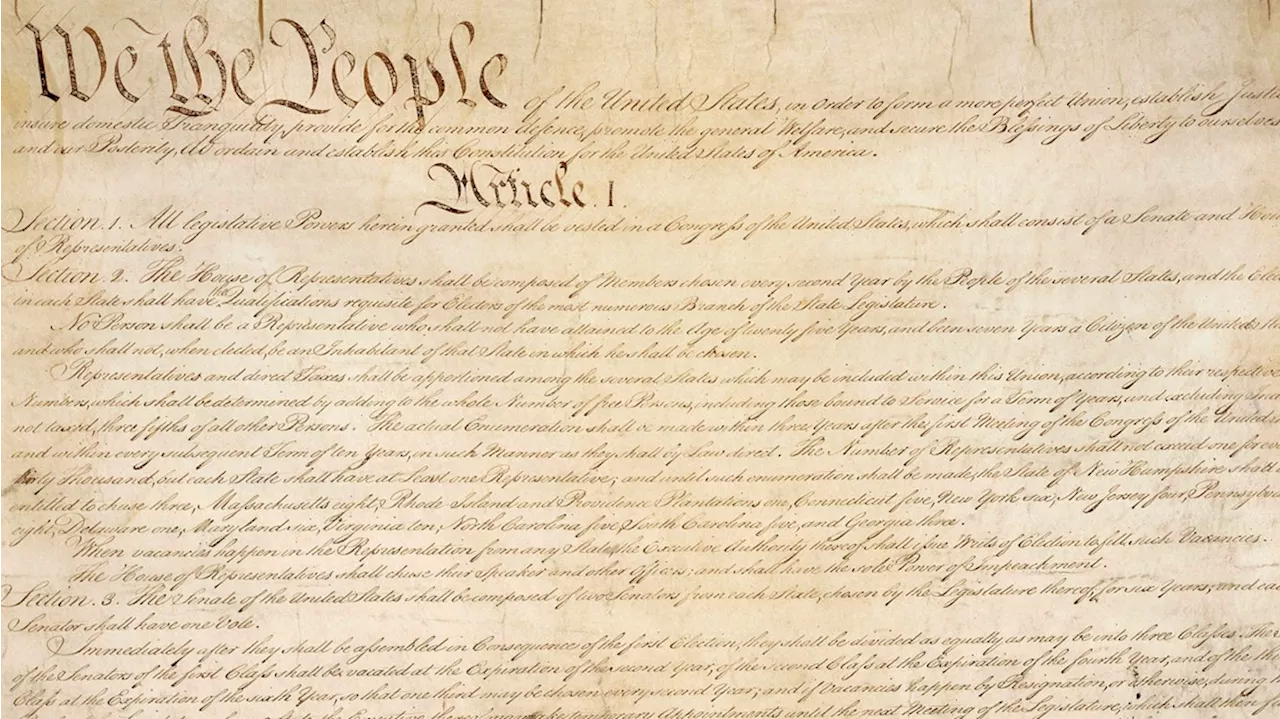 We the People of the United States, in Order to form a more perfect Union, establish Justi
insure domestic Tranquility, provide for the common defence, promote the general Welfare, and secure the Blessings of Liberty to ourselves
and our Posterity, do ordain and establish this Constitution for the United States of America.
Article. I.
Section. 1. All legislative Powers herein granted shall be vested in a Congress of the United States, which shall consist of a Senate and Hou
of Representatives.
Section. 2. The House of Representatives shall be composed of Members chosen every second Year by the People of the several States, and the Elec
in each State shall have the Qualifications requisite for Electors of the most numerous Branch of the State Legislature.
No Person shall be a Representative who shall not have attained to the Age of twenty five Years, and been seven Years a Citizen of the United Sta
and who shall not, when elected, be an Inhabitant of that State in which he shall be chosen.
Representatives and direct Taxes shall be apportioned among the several States which may be included within this Union, according to their respective
Numbers, which shall be determined by adding to the whole Number of free Persons, including those bound to Service for a Term of Years, and excluding Ind
not taxed, three fifths of all other Persons. The actual Enumeration shall be made within three Years after the first Meeting of the Congress of the United
and within every subsequent Term of ten Years, in such Manner as they shall by Law direct. The Number of Representatives shall not exceed one for every
thirty Thousand, but each State shall have at Least one Representative; and until such enumeration shall be made, the State of New Hampshire shall
entitled to chuse three, Massachusetts eight, Rhode Island and Providence Plantations one, Connecticut five, New York six, New Jersey four, Pennsylva
eight, Delaware one, Maryland six, Virginia ten, North Carolina five, South Carolina five, and Georgia three.
When vacancies happen in the Representation from any State, the Executive Authority thereof shall issue Writs of Election to fill such Vacancies.
The House of Representatives shall chuse their Speaker and other Officers; and shall have the sole Power of Impeachment.
Section. 3. The Senate of the United States shall be composed of two Senators from each State, chosen by the Legislature thereof, for six Years; and ea
Senator shall have one Vote.
Immediately after they shall be assembled in Consequence of the first Election, they shall be divided as equally as may be into three Classes. The
of the Senators of the first Class shall be vacated at the Expiration of the second Year, of the second Class at the Expiration of the fourth Year, and of the th
Class at the Expiration of the sixth Year, so that one third may be chosen every second Year; and if Vacancies happen by Resignation, or otherwise, during
State, the Executive thereof may make temporary Appointments until the next Meeting of the Legislature, which shall then